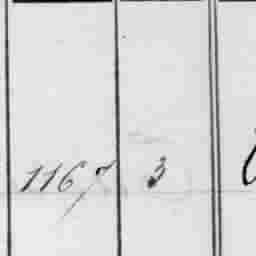 1167 3